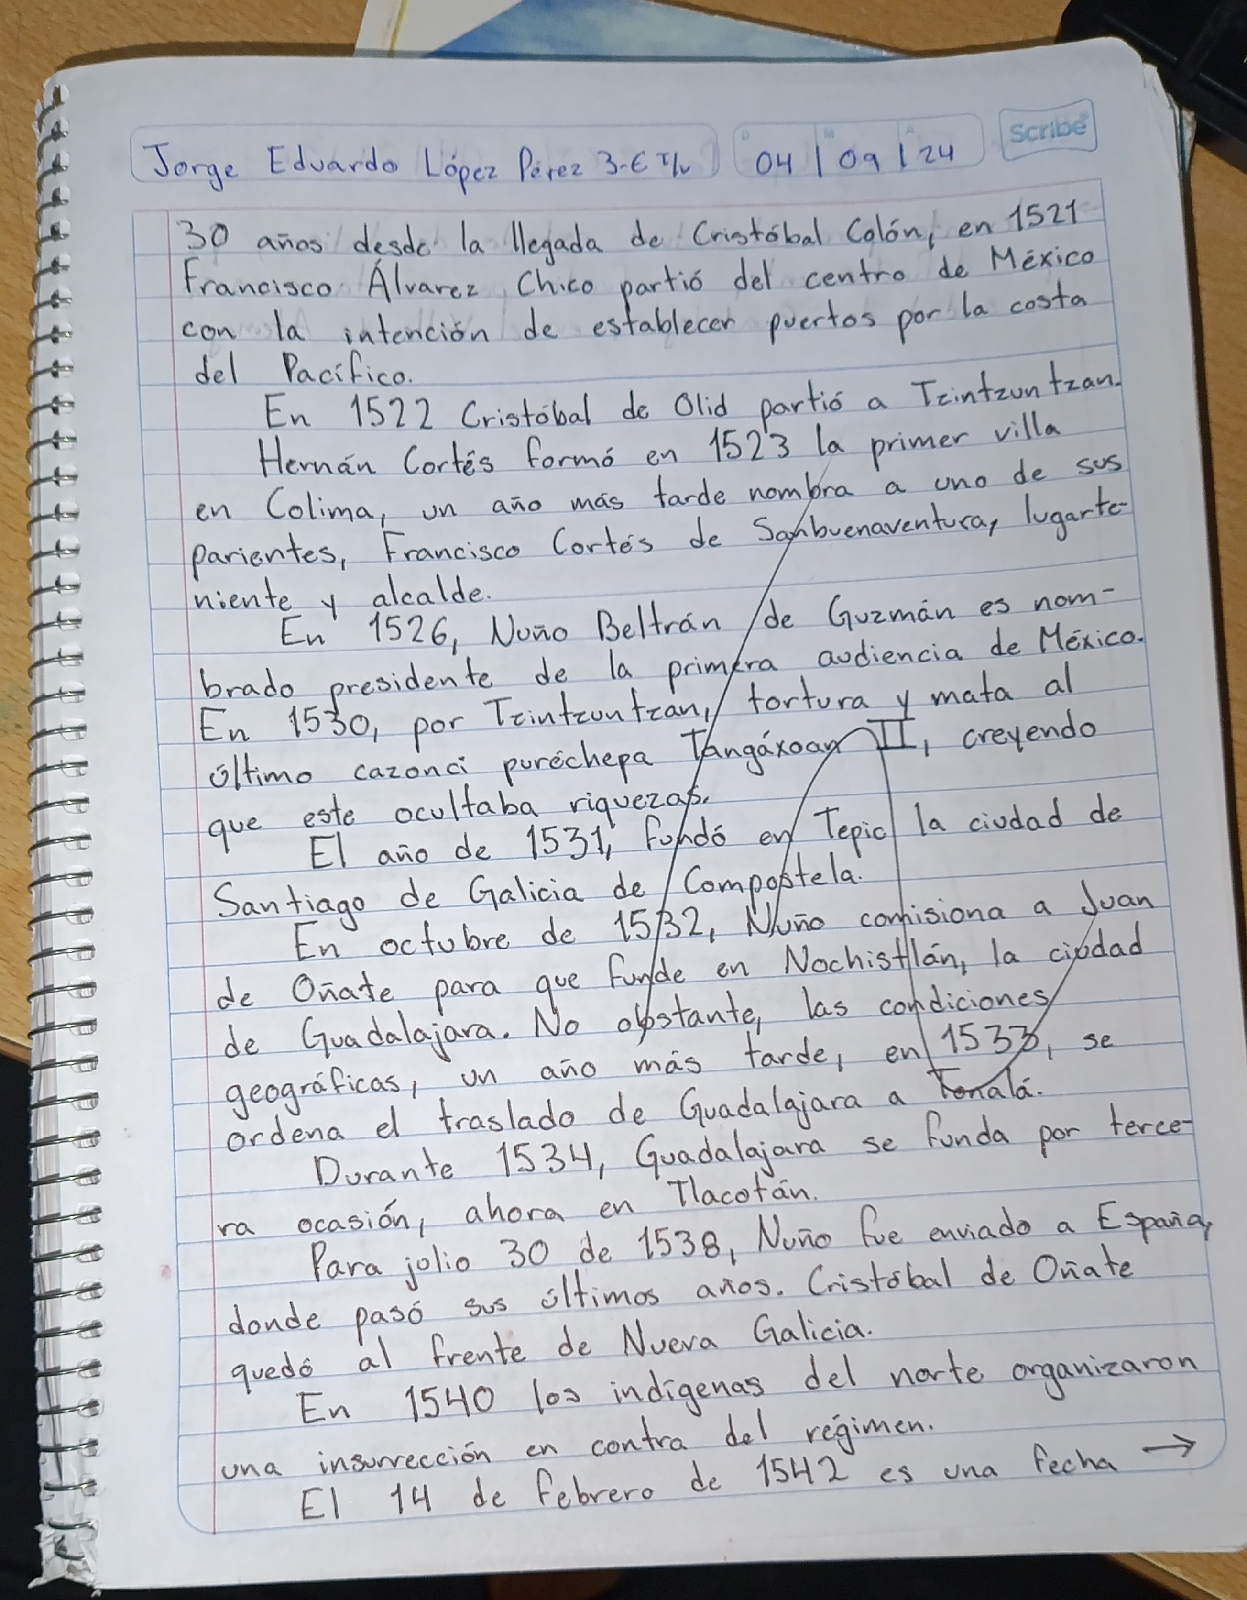 Jorge Eduardo López Pérez 3-E T/V 04/09/24
Scribe
30 años desde la llegada de Cristóbal Colón, en 1521
Francisco Álvarez Chico partió del centro de México
con la intención de establecer puertos por la costa
del Pacífico.
En 1522 Cristóbal de Olid partió a Tzintzuntzan.
Hernán Cortés formó en 1523 la primer villa
en Colima, un año más tarde nombra a uno de sus
parientes, Francisco Cortés de Sanbuenaventura, lugarte-
niente y alcalde.
En 1526, Nuño Beltrán de Guzmán es nom-
brado presidente de la primera audiencia de México.
En 1530, por Tzintzuntzan, tortura y mata al
último cazonci puréchepa Tangáxoan II, creyendo
que este ocultaba riquezas.
El año de 1531, fundó en Tepic la ciudad de
Santiago de Galicia de Compostela.
En octubre de 1532, Nuño comisiona a Juan
de Oñate para que funde en Nochistlán, la ciudad
de Guadalajara. No obstante, las condiciones
geográficas, un año más tarde, en 1533, se
ordena el traslado de Guadalajara a Tonalá.
Durante 1534, Guadalajara se funda por terce-
ra ocasión, ahora en Tlacotán.
Para julio 30 de 1538, Nuño fue enviado a España,
donde pasó sus últimos años. Cristóbal de Oñate
quedó al frente de Nueva Galicia.
En 1540 los indígenas del norte organizaron
una insurrección en contra del régimen.
El 14 de febrero de 1542 es una fecha →